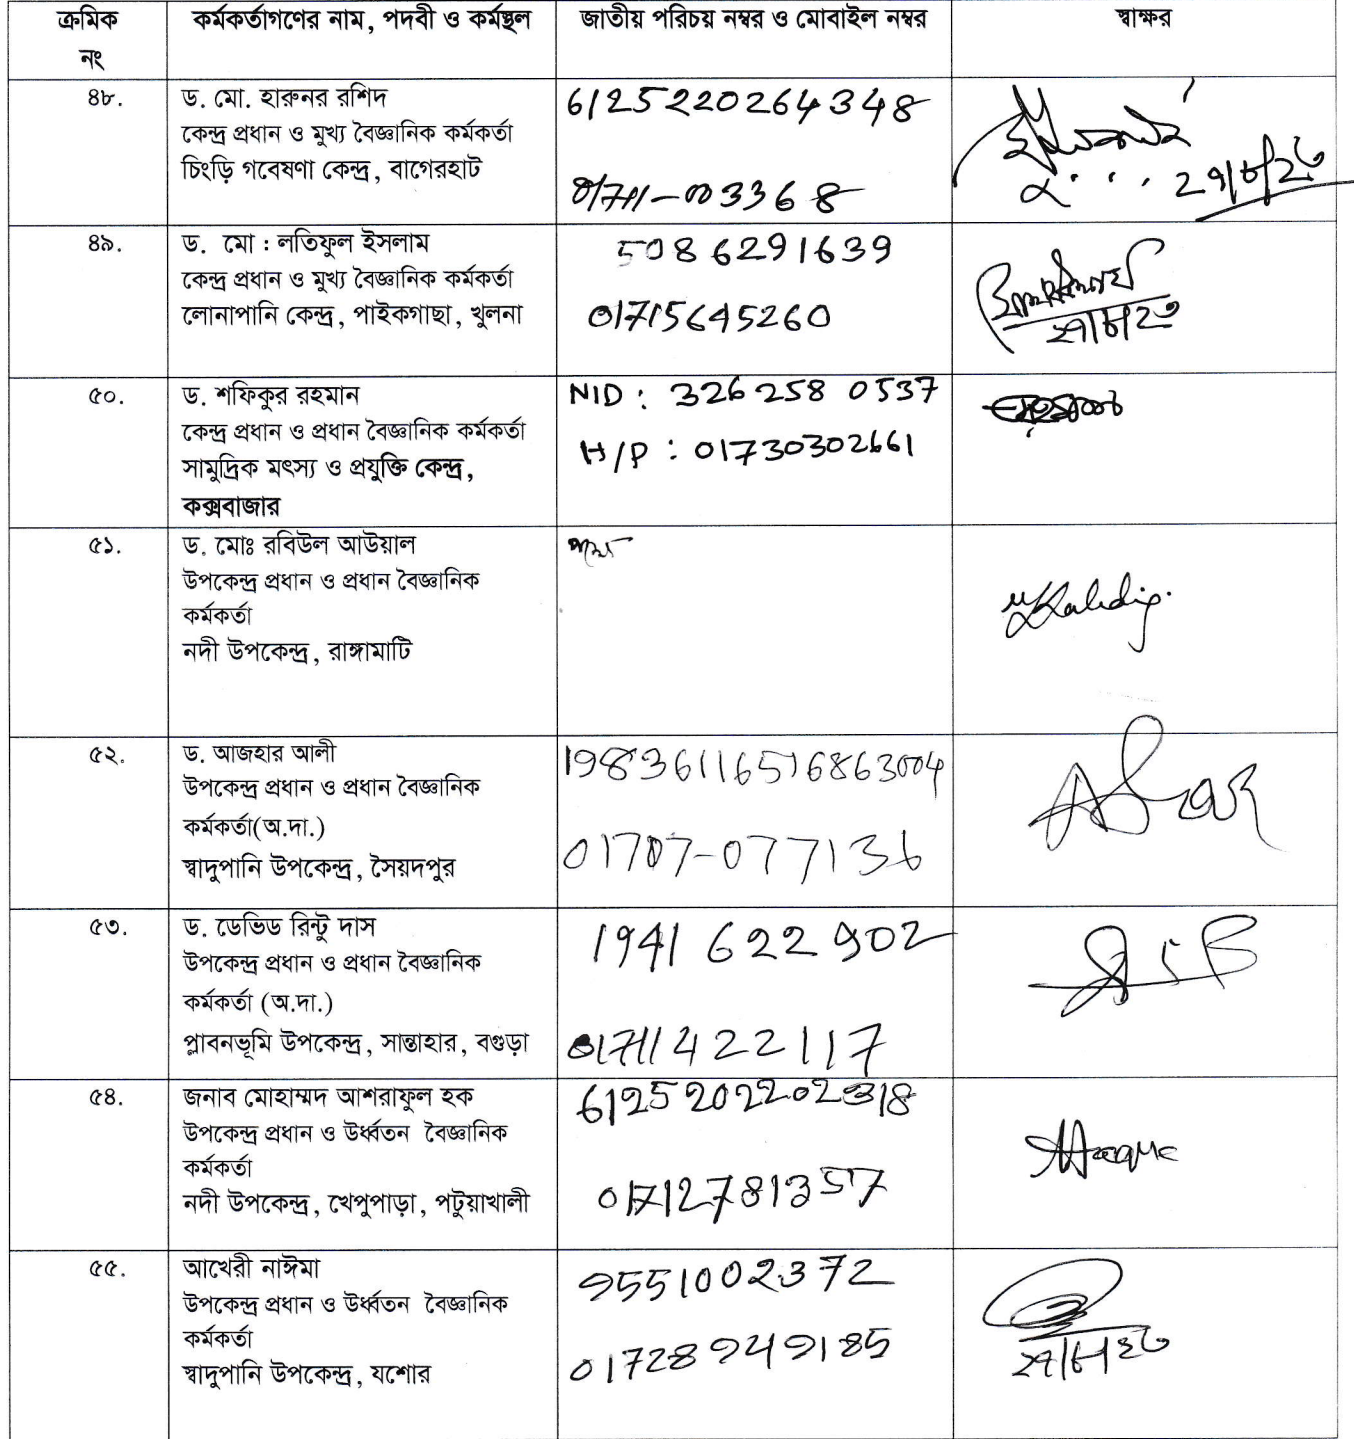 ক্রমিক নং
কর্মকর্তাগণের নাম, পদবী ও কর্মস্থল
জাতীয় পরিচয় নম্বর ও মোবাইল নম্বর
স্বাক্ষর
৪৮.
ড. মো. হারুনর রশিদ
কেন্দ্র প্রধান ও মুখ্য বৈজ্ঞানিক কর্মকর্তা
চিংড়ি গবেষণা কেন্দ্র, বাগেরহাট
6125220264348
01711-003368
৪৯.
ড. মো : লতিফুল ইসলাম
কেন্দ্র প্রধান ও মুখ্য বৈজ্ঞানিক কর্মকর্তা
লোনাপানি কেন্দ্র, পাইকগাছা, খুলনা
5086291639
01715645260
৫০.
ড. শফিকুর রহমান
কেন্দ্র প্রধান ও প্রধান বৈজ্ঞানিক কর্মকর্তা
সামুদ্রিক মৎস্য ও প্রযুক্তি কেন্দ্র,
কক্সবাজার
NID : 326 258 0537
H/P : 01730302661
৫১.
ড. মোঃ রবিউল আউয়াল
উপকেন্দ্র প্রধান ও প্রধান বৈজ্ঞানিক
কর্মকর্তা
নদী উপকেন্দ্র, রাঙ্গামাটি
৫২.
ড. আজহার আলী
উপকেন্দ্র প্রধান ও প্রধান বৈজ্ঞানিক
কর্মকর্তা(অ.দা.)
স্বাদুপানি উপকেন্দ্র, সৈয়দপুর
19836116516863004
01707-077136
৫৩.
ড. ডেভিড রিন্টু দাস
উপকেন্দ্র প্রধান ও প্রধান বৈজ্ঞানিক
কর্মকর্তা (অ.দা.)
প্লাবনভূমি উপকেন্দ্র, সান্তাহার, বগুড়া
1941 622 902
01711422117
৫৪.
জনাব মোহাম্মদ আশরাফুল হক
উপকেন্দ্র প্রধান ও উর্ধ্বতন বৈজ্ঞানিক
কর্মকর্তা
নদী উপকেন্দ্র, খেপুপাড়া, পটুয়াখালী
6125202202318
01712781357
Haque
৫৫.
আখেরী নাঈমা
উপকেন্দ্র প্রধান ও উর্ধ্বতন বৈজ্ঞানিক
কর্মকর্তা
স্বাদুপানি উপকেন্দ্র, যশোর
9551002372
01728949185